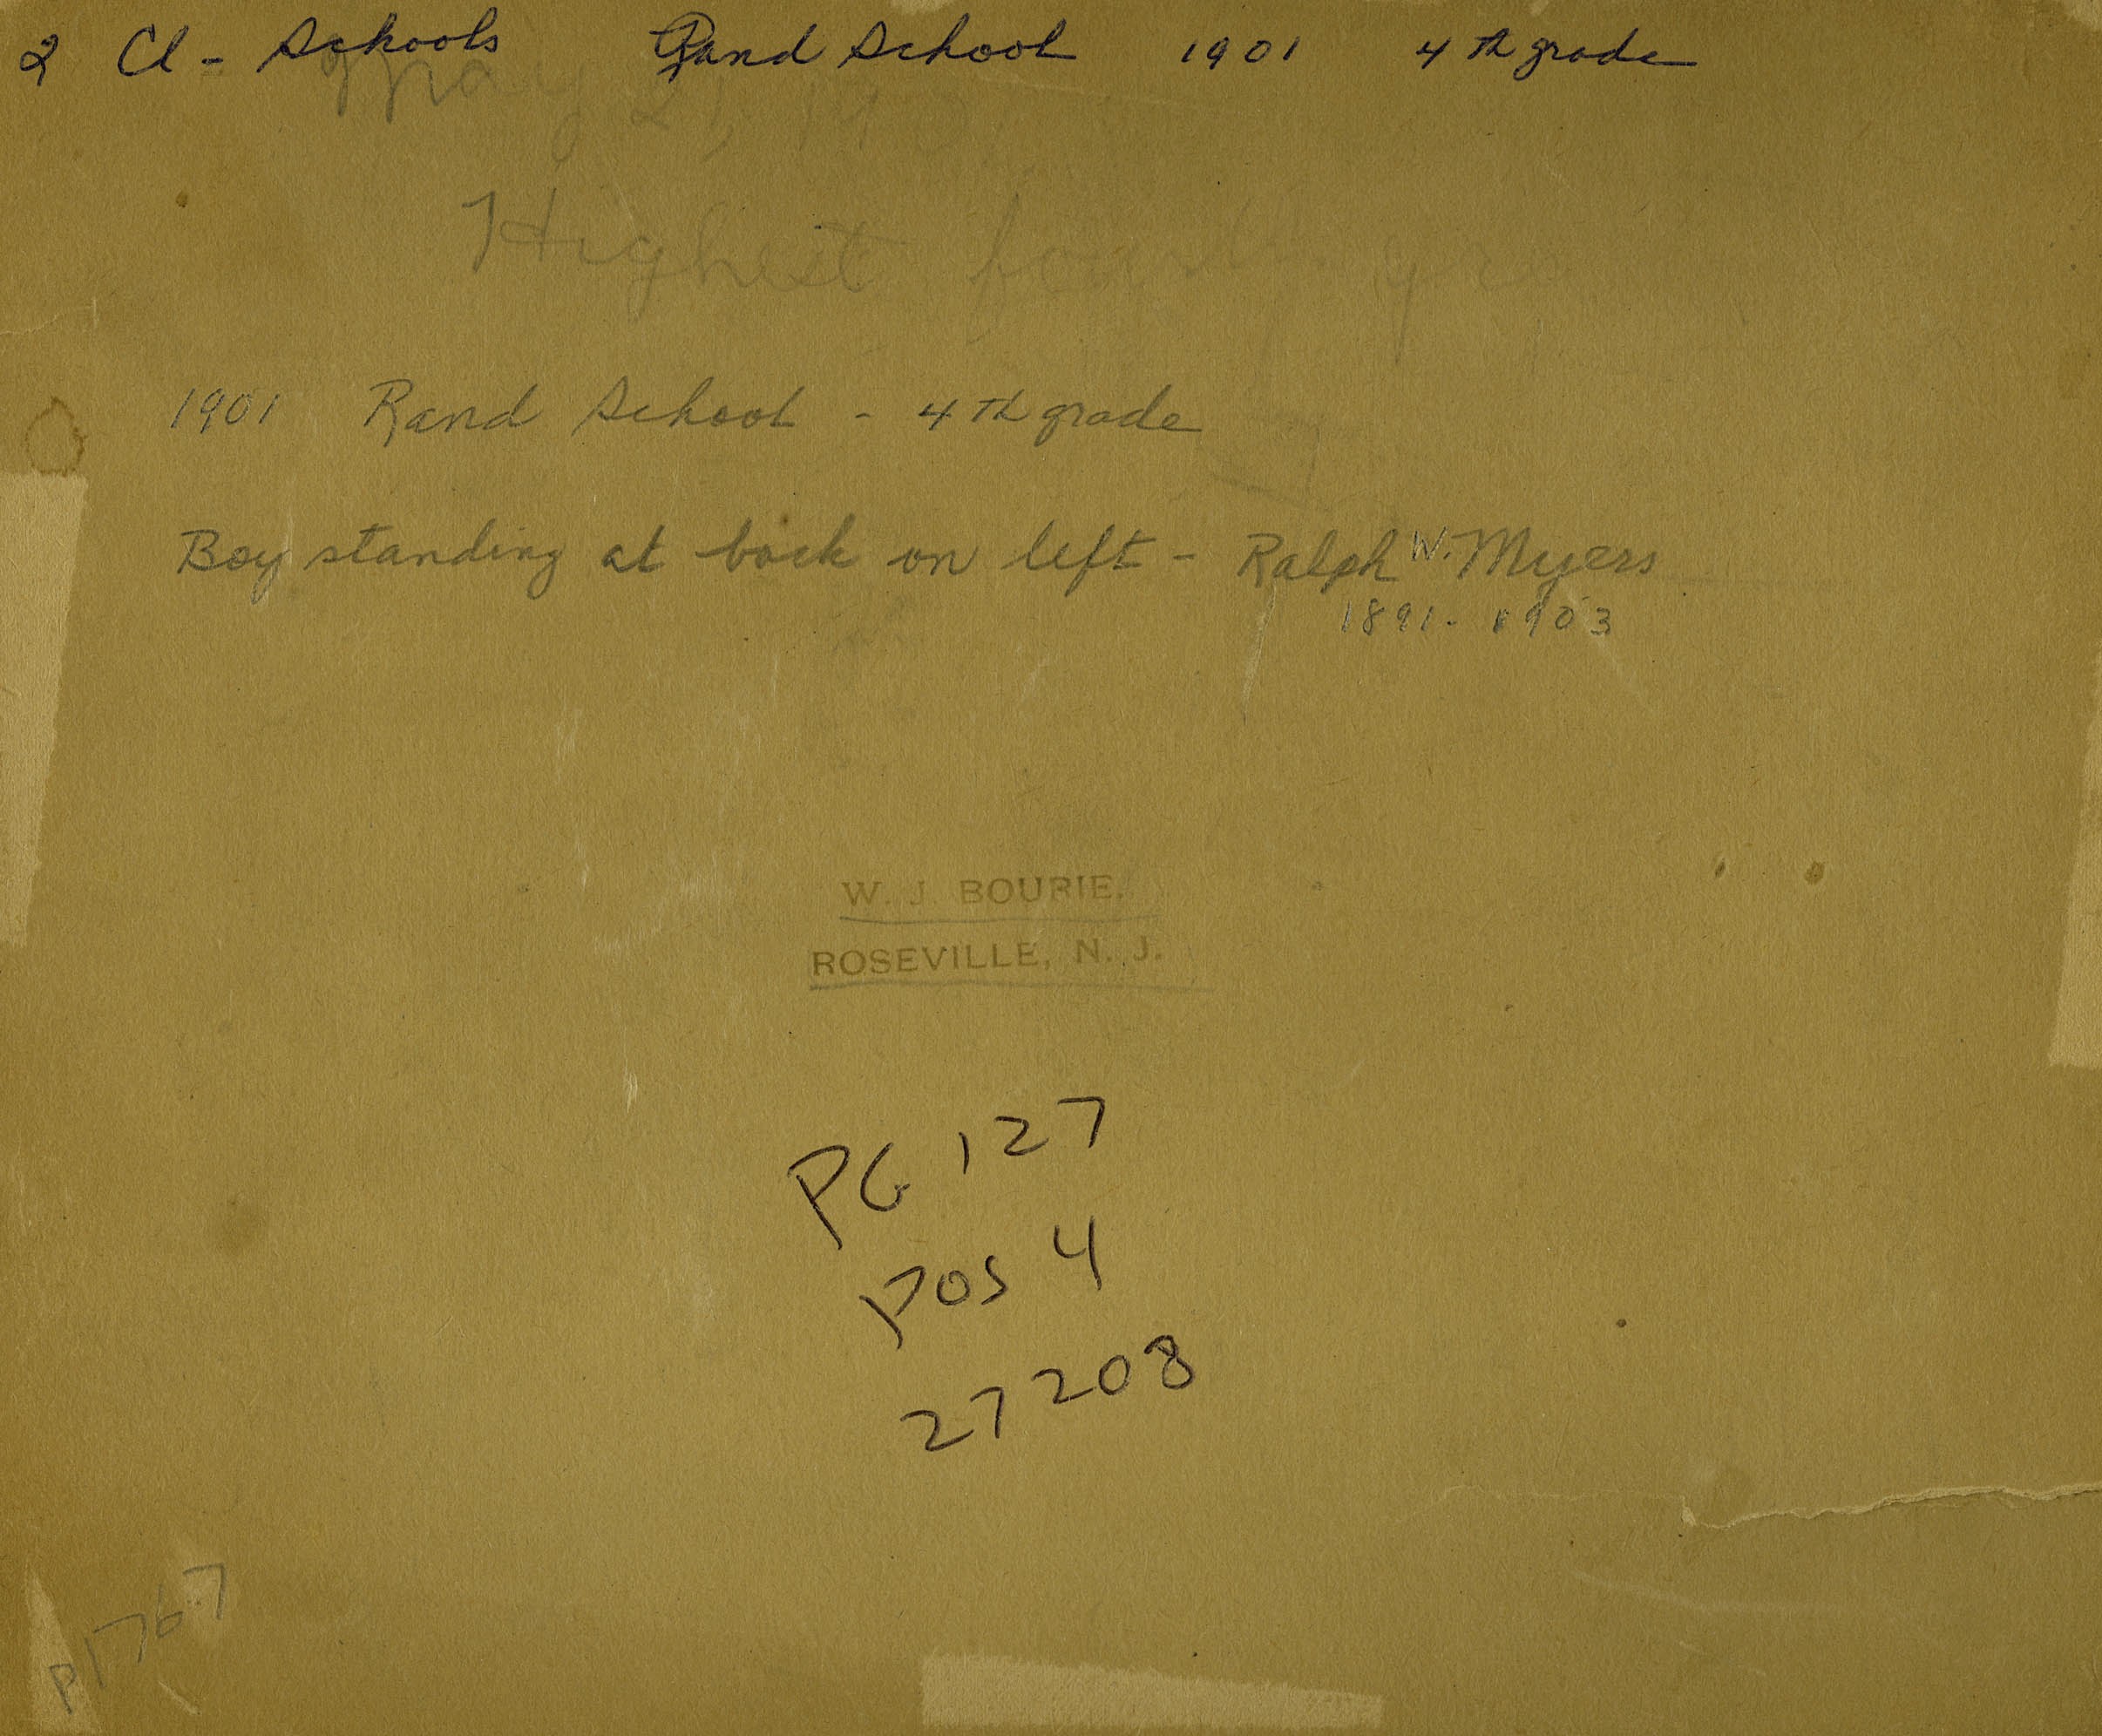 2 Cl - Schools Rand School 1901 4th grade
May 21, 190
Highest fourth gra
1901 Rand School - 4th grade
Boy standing at back on left - Ralph W. Myers
1891 - 1903
W. J. BOURIE.
ROSEVILLE, N. J.
PG 127
POS 4
27208
P1767